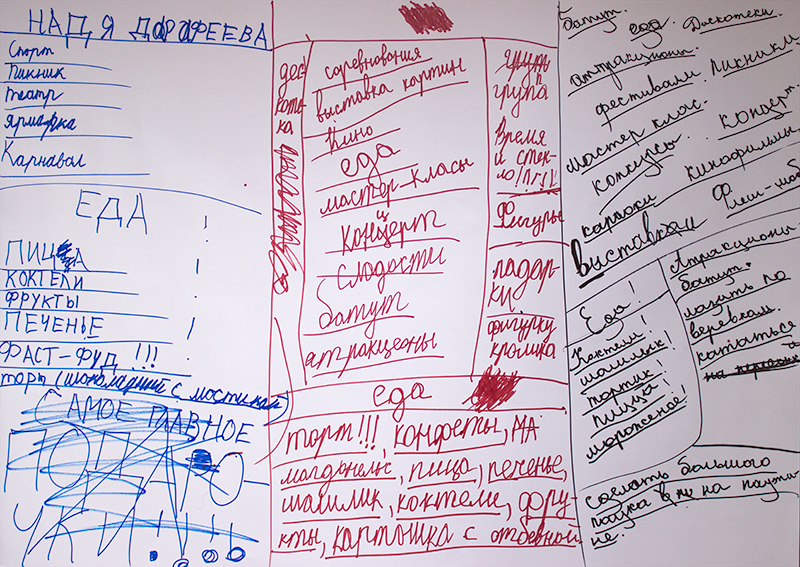 НАДЯ ДАРАФЕЕВА
Спорт
Пикник
театр
ярмарка
Карнавал
ЕДА
ПИЦА
КОКТЕЛИ
ФРУКТЫ
ПЕЧЕНЬЕ
ФАСТ-ФУД !!!
торт (шоколадний с мостиком)
САМОЕ ГЛАВНОЕ
ПОДАРО-
УКИ!!!!
дес
кате
ка
соревнования
выставка картин
Кино
еда
мастор-класы
концерт
сладости
батут
атракцеоны
група
Время
и стек-
ло!!!!!
Фигуры
падар-
ки
фигурку
кролика
еда
торт!!!, конфеты, МА
магдональс, пица, печенье,
шашилик, коктели, фру-
кты, картышка с отбевной
батут. еда. Дискотеки.
аттракционы.
фестивали. Пикники.
Мастер клас.
конкурсы. концерт.
караоки кинофильмы.
Выставкаи Флеш-моб
Еда!
Коктели!
шашилык!
тортик
пицца!
мороженое!
Атракционы
батут.
лазить по
веревкам.
кататься
на
сделать большого
паука в не на паути-
не.